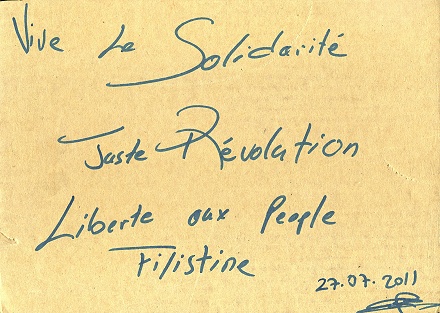 Vive La Solidarité
Juste Révolution
Liberte aux People
Filistine
27.07.2011